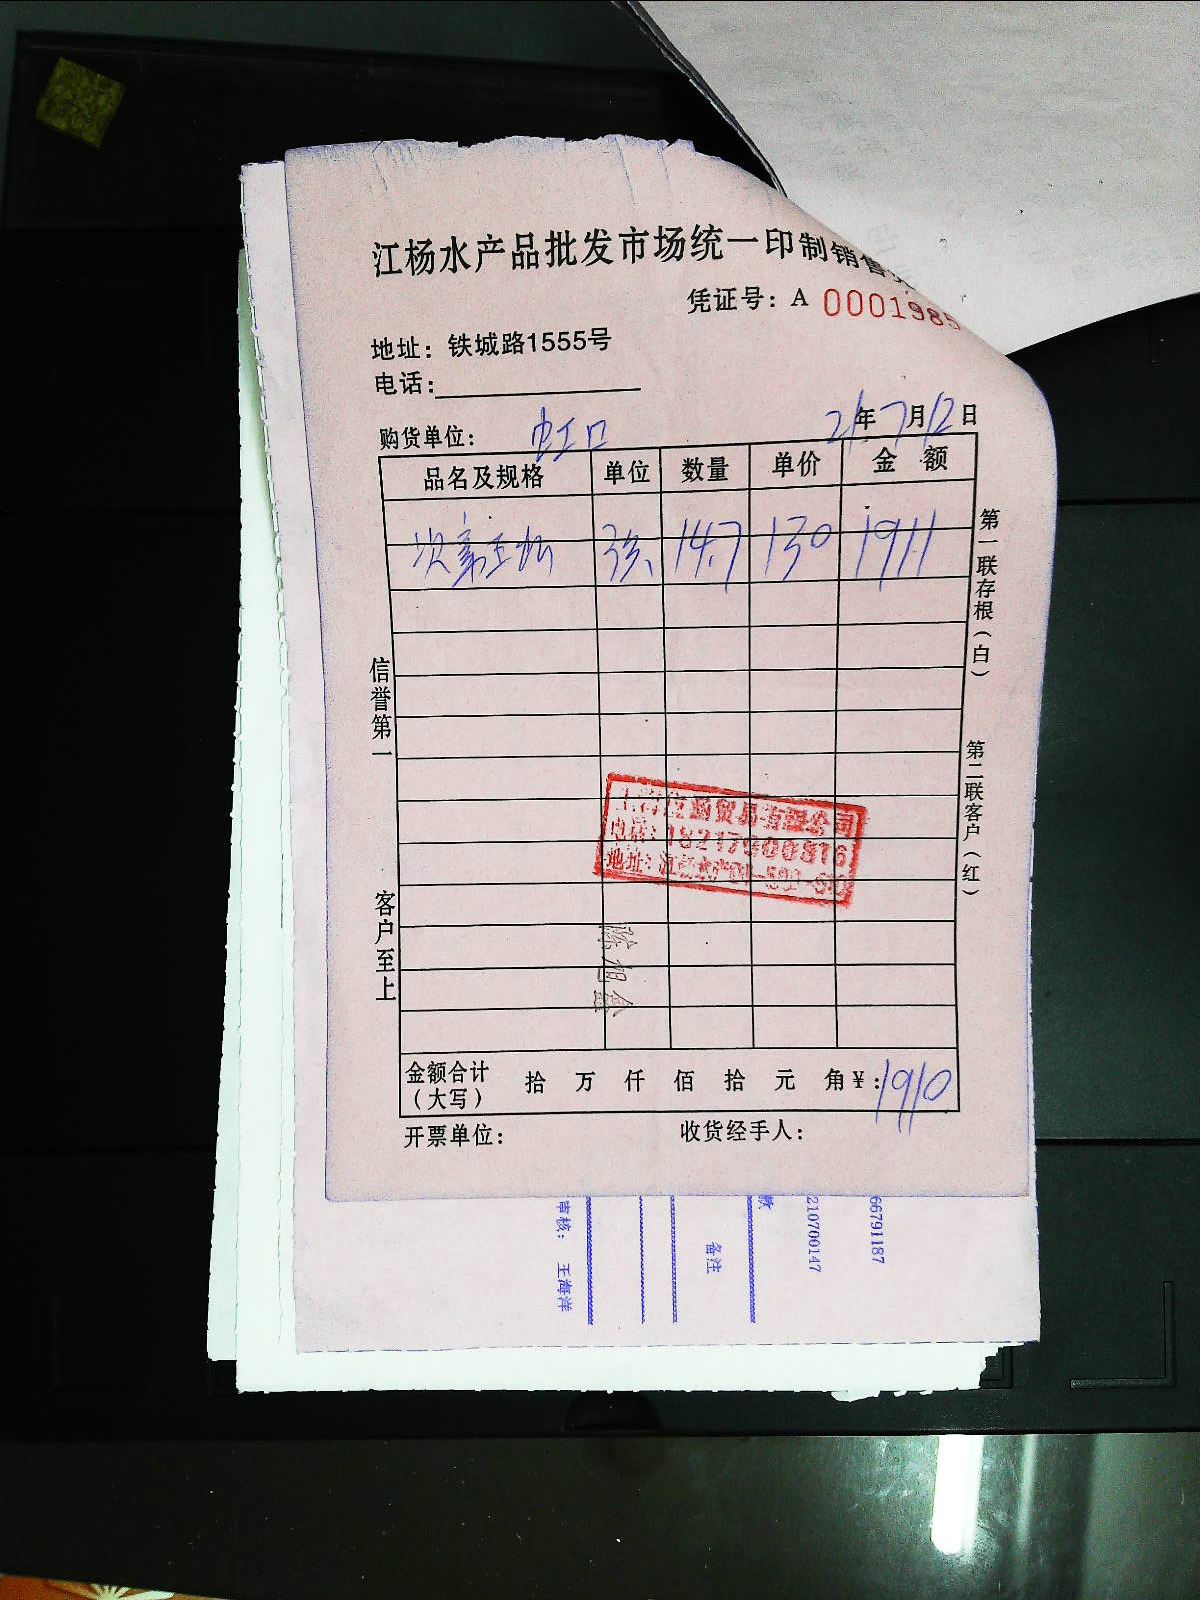 江杨水产品批发市场统一印制销售
凭证号：A 0001985
地址：铁城路1555号
电话：
购货单位： 虹口
21年7月12日
品名及规格 单位 数量 单价 金额
14.7 130 1911
信誉第一
客户至上
第一联存根（白）
第二联客户（红）
贸易有限公司
电话：18217600816
地址：江杨水产
陈旭金
金额合计（大写） 拾 万 仟 佰 拾 元 角 ¥：1910
开票单位： 收货经手人：
审核： 王海洋
备注
款
210700147
66791187